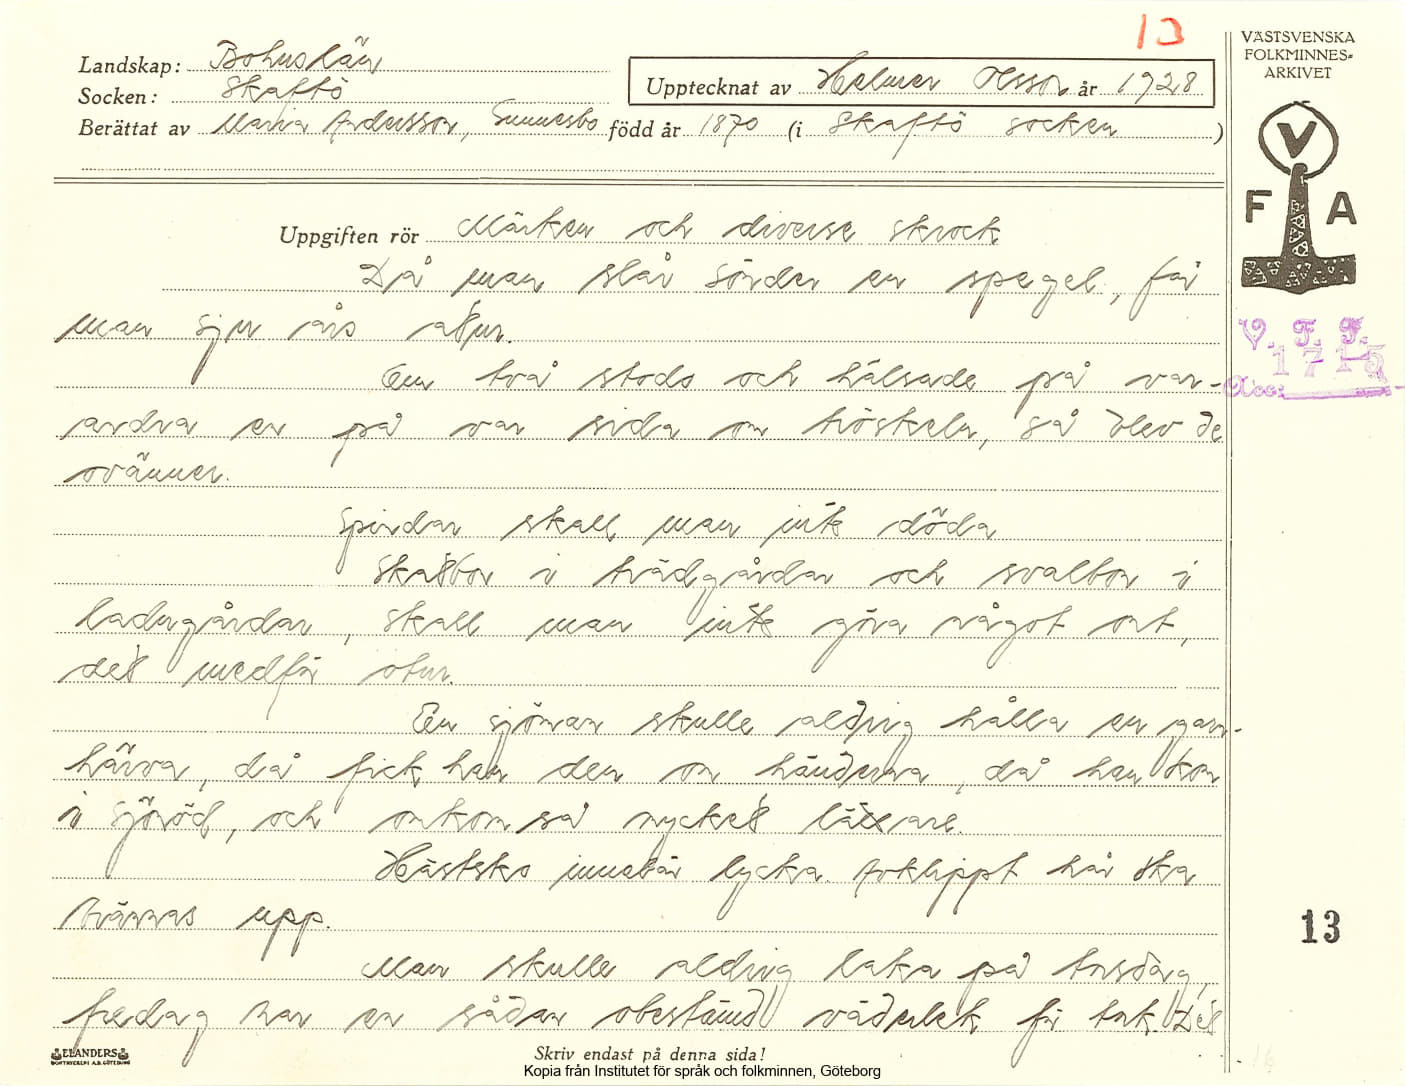 13
VÄSTSVENSKA
FOLKMINNES=
ARKIVET
Landskap: Bohuslän
Socken: Skaftö
Upptecknat av Helmer Olsson år 1928
Berättat av Maria Andersson, Sunnesbo född år 1870 (i Skaftö socken )
V
F A
V. F. F.
1715
Acc:
Uppgiften rör Märken och diverse skrock
Då man slår sönder en spegel, får
man sju års otur.
Om två stods och hälsade på var-
andra en på var sida om tröskeln, så blev de
ovänner.
Spindlar skall man inte döda
Skatbon i trädgårdar och svalbon i
ladugårdar, skall man inte göra något ont,
det medför otur.
En sjöman skulle aldrig hålla en garn-
härva, då fick han den om händerna, då han kom
i sjönöd, och omkom så mycket lättare.
Hästsko innebär lycka. Avklippt hår ska
brännas upp.
Man skulle aldrig baka på torsdag,
fredag var en sådan obestämd väderlek för tok. Det
13
ELANDERS
BOKTRYCKERI A.B. GÖTEBORG
Skriv endast på denna sida!
Kopia från Institutet för språk och folkminnen, Göteborg
16